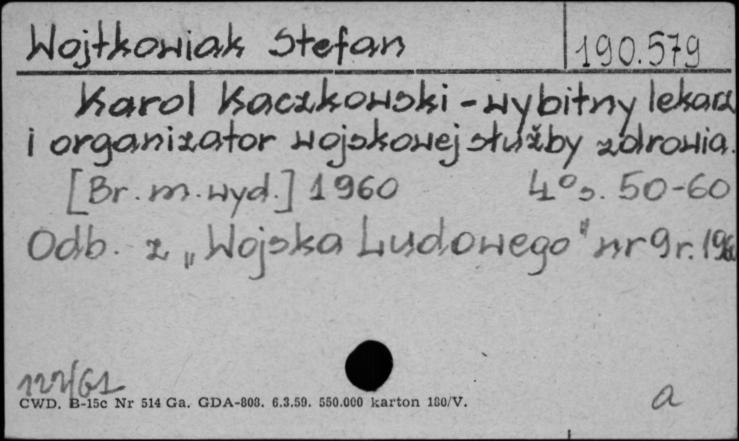 Wojtkowiak Stefan 190.579
Karol Kaczkowski - wybitny lekarz
i organizator wojskowej służby zdrowia.
[Br. m. wyd.] 1960 4° s. 50-60
Odb. z „Wojska Ludowego" nr 9 r. 1960
122/61
CWD. B-15c Nr 514 Ga. GDA-808. 6.3.59. 550.000 karton 180/V.
a